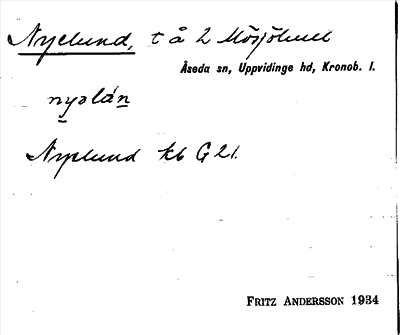 Nyelund, t å 2 Mösjöhult
Åseda sn, Uppvidinge hd, Kronob. l.
nyəlán
Nyelund kb G21.
FRITZ ANDERSSON 1934